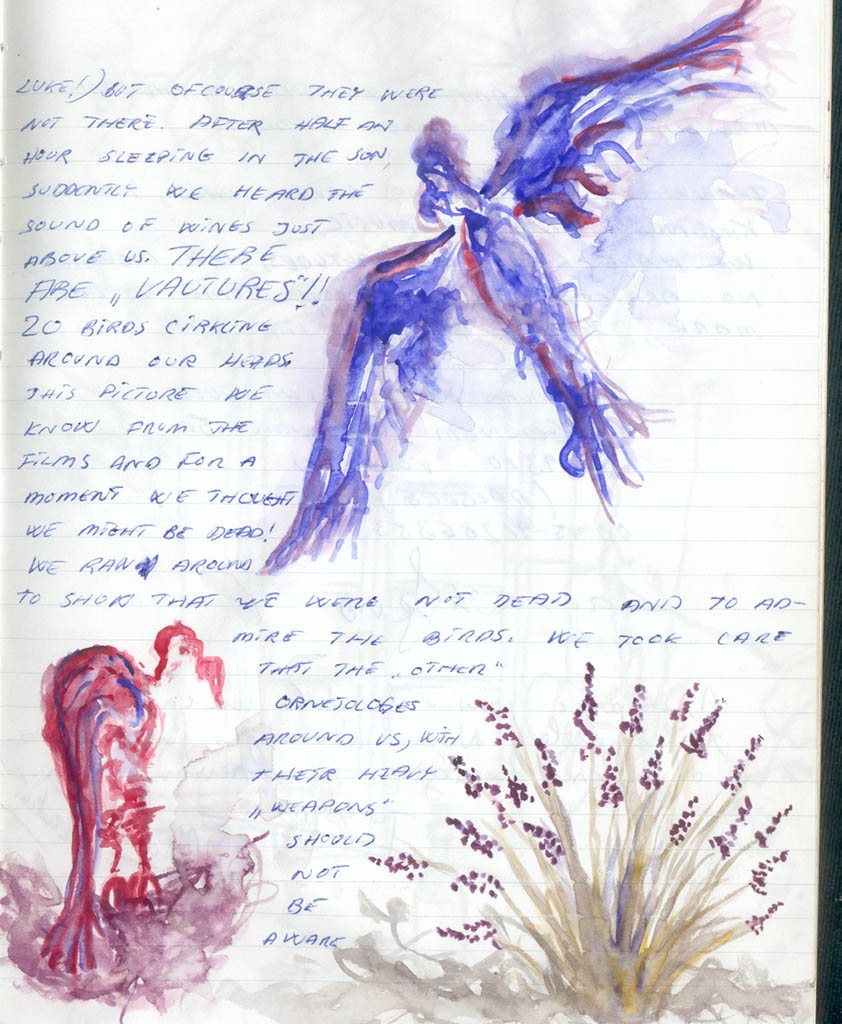 LUKE!) BUT OFCOURSE THEY WERE
NOT THERE. AFTER HALF AN
HOUR SLEEPING IN THE SUN,
SUDDENTLY WE HEARD THE
SOUND OF WINGS JUST
ABOVE US. THERE
ARE „VAUTURES"!!
20 BIRDS CIRKLING
AROUND OUR HEADS.
THIS PICTURE WE
KNOW FROM THE
FILMS AND FOR A
MOMENT WE THOUGHT
WE MIGHT BE DEAD!
WE RAN AROUND
TO SHOW THAT WE WERE NOT DEAD AND TO AD-
MIRE THE BIRDS. WE TOOK CARE
THAT THE „OTHER"
ORNETOLOGES
AROUND US, WITH
THEIR HEAVY
„WEAPONS"
SHOULD
NOT
BE
AWARE